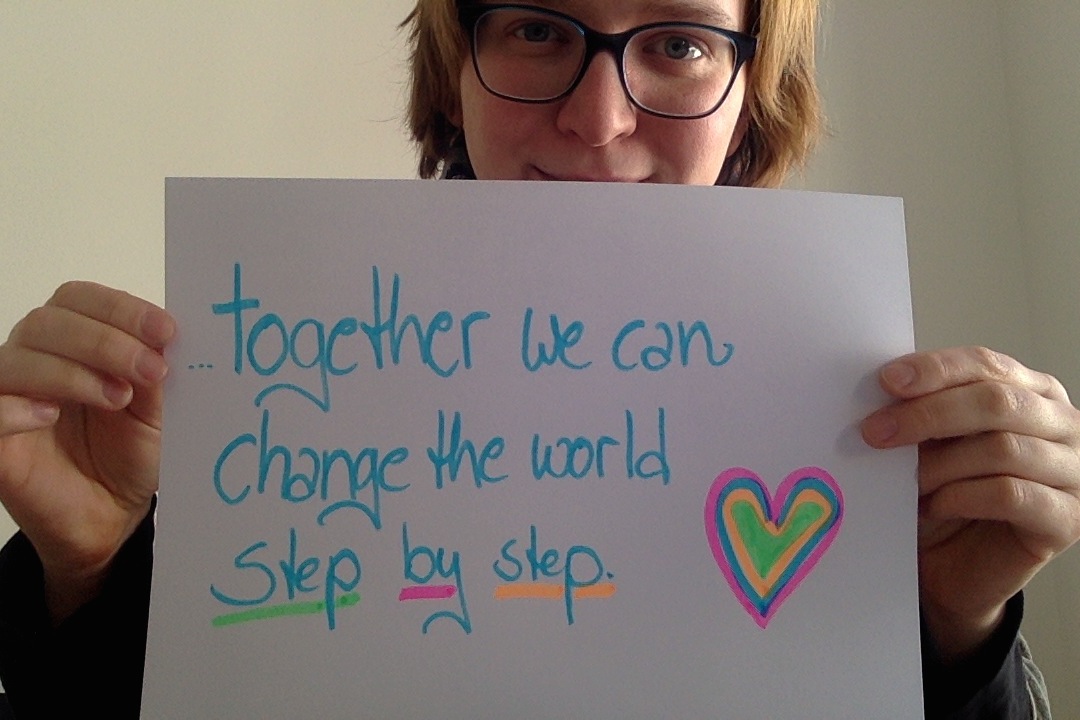 ...together we can
change the world
step by step.